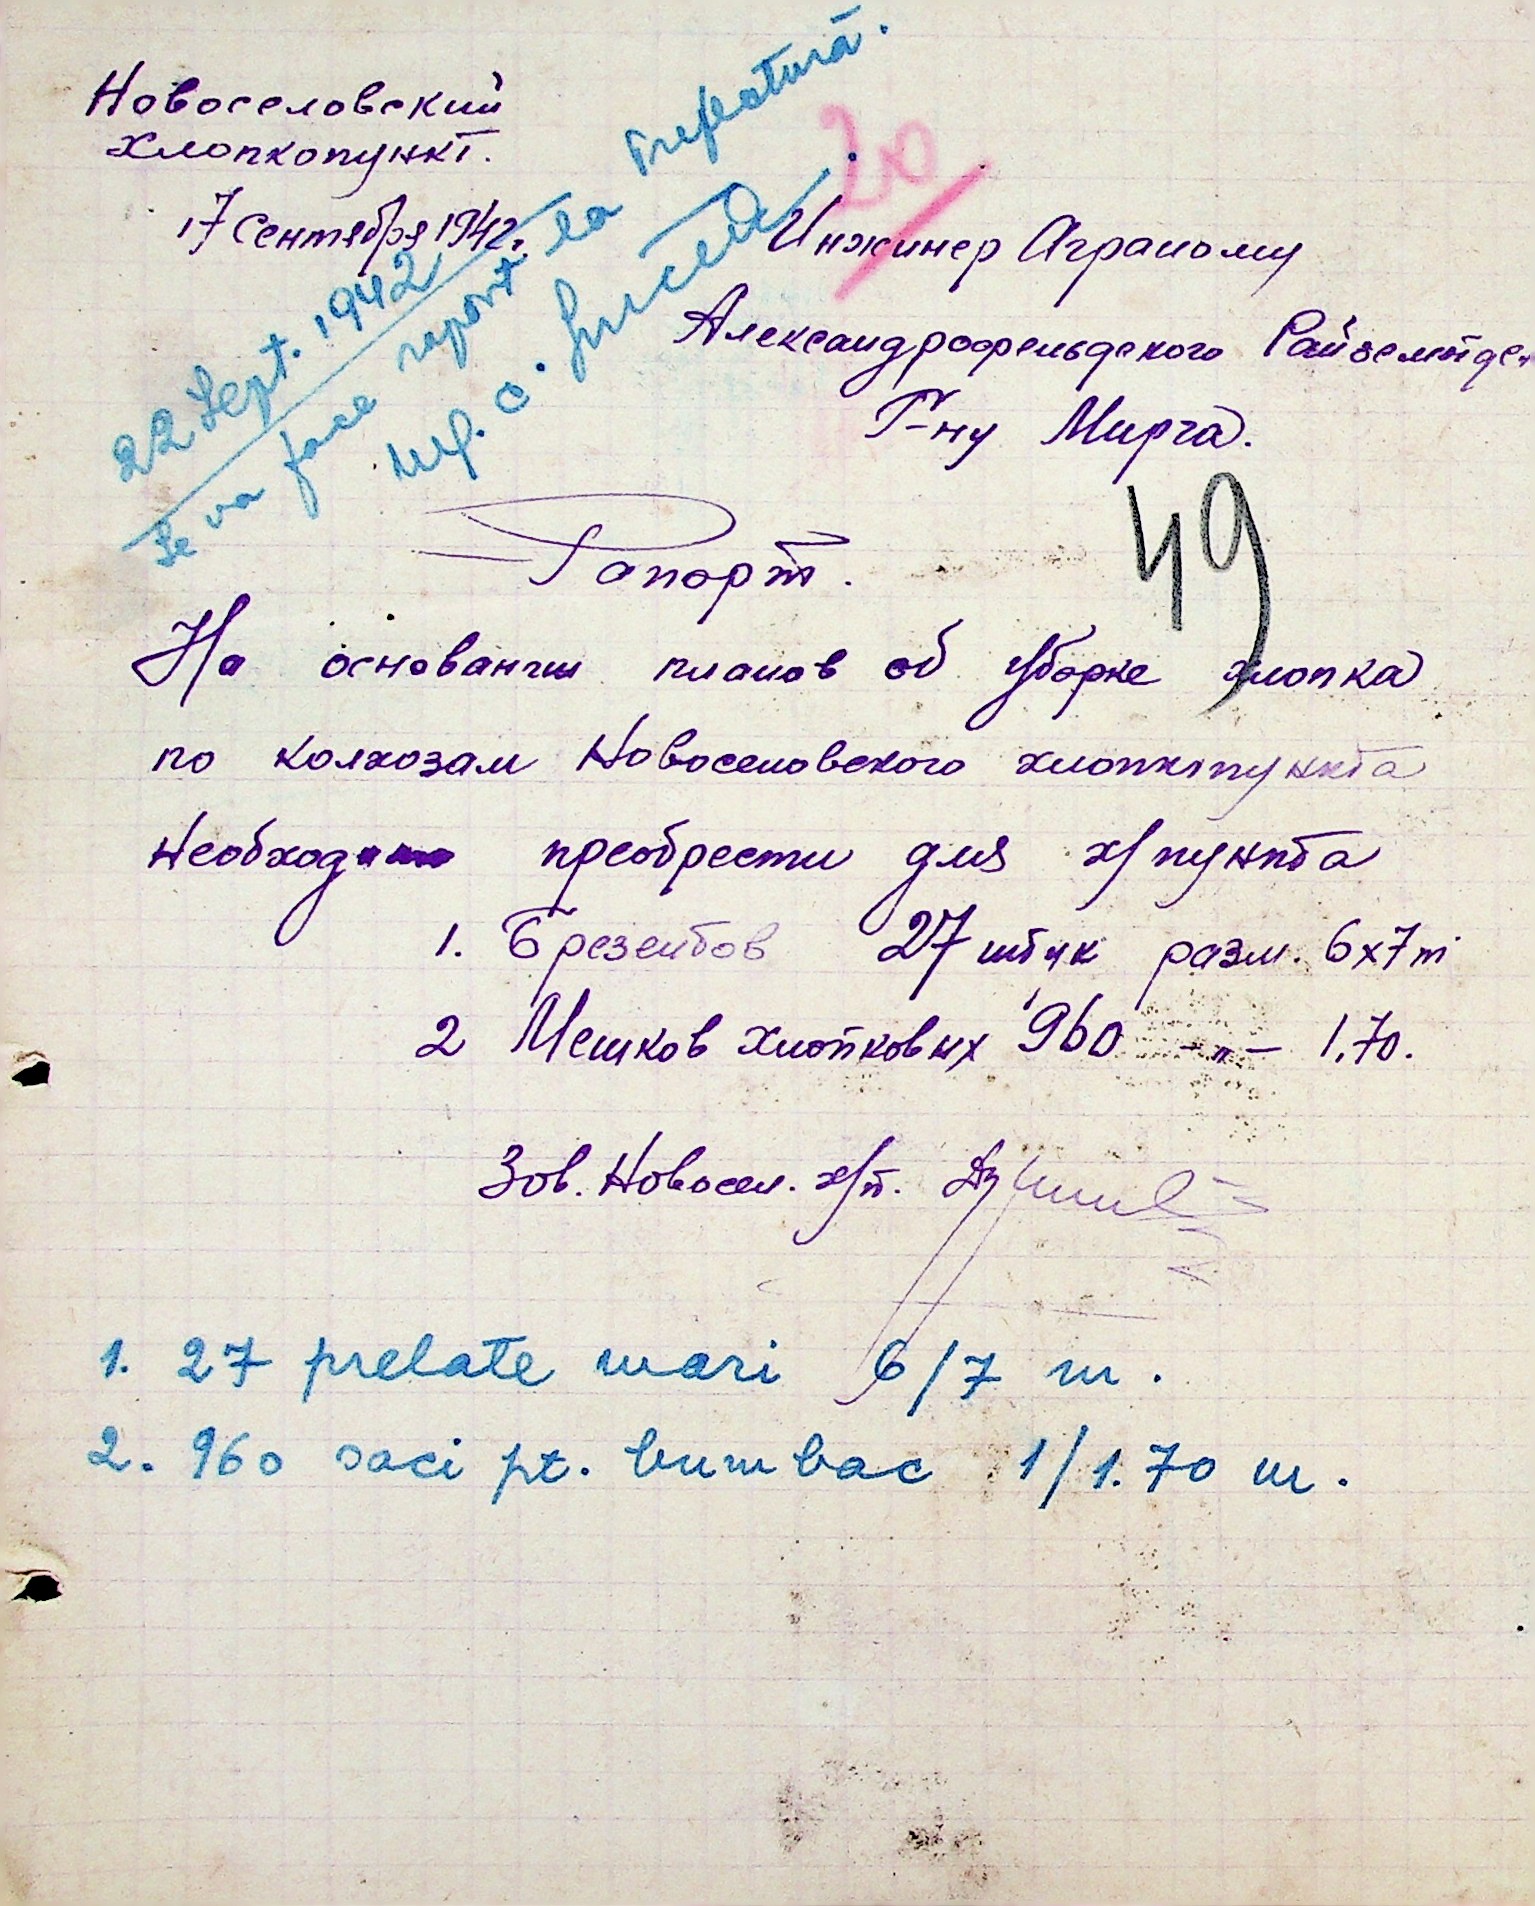 Новоселовский
хлопкопункт.
17 Сентября 1942.
20
22 Sept. 1942
Se va face report la Prefectură.
Инжинер Аграному
Александрофельдского
Г-ну Мирча.
49
Рапорт.
На основании планов об уборке хлопка
по колхозам Новоселовского хлопкопункта
необходимо преобрести для х/пункта
1. Брезентов 27 штук разм. 6х7 m
2 Мешков хлопковых 960 -"- 1,70.
Зав. Новосел. х/п.
1. 27 prelate mari 6/7 m.
2. 960 saci pt. bumbac 1/1.70 m.